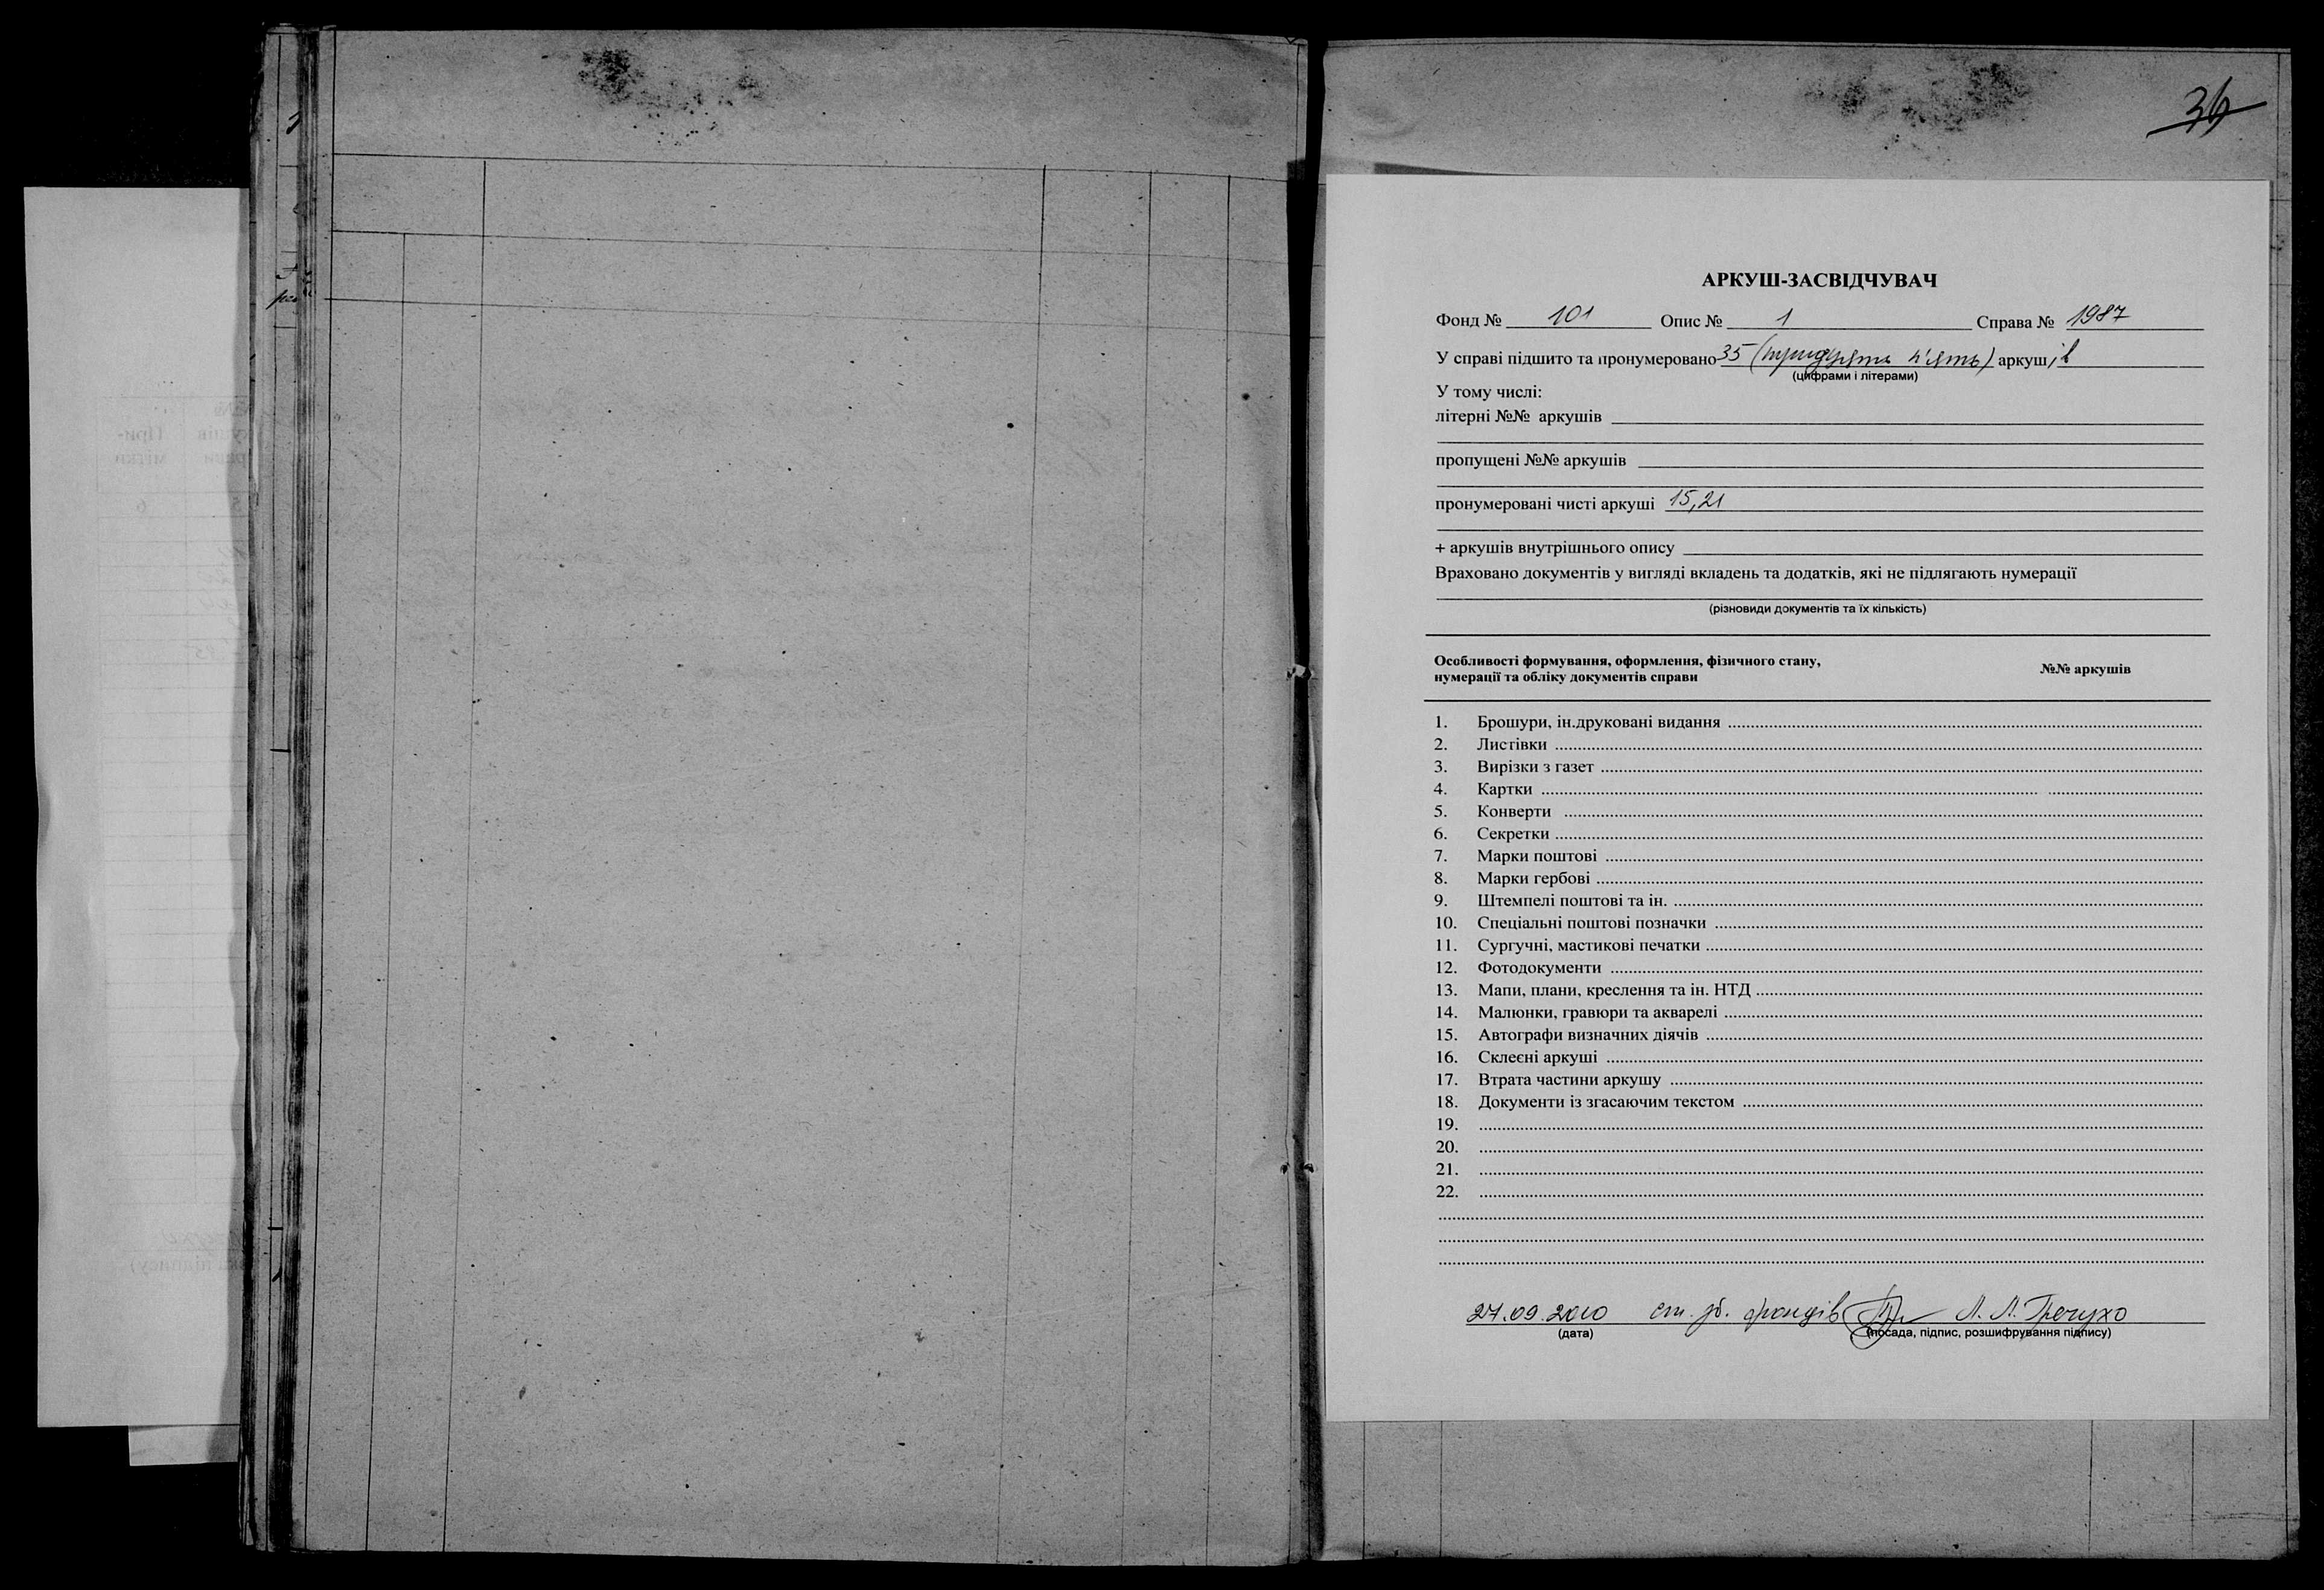 36
АРКУШ-ЗАСВІДЧУВАЧ
Фонд № 101 Опис № 1 Справа № 1987
У справі підшито та пронумеровано 35 (тридцять п'ять) аркушів
(цифрами і літерами)
У тому числі:
літерні №№ аркушів
пропущені №№ аркушів
пронумеровані чисті аркуші 15,21
+ аркушів внутрішнього опису
Враховано документів у вигляді вкладень та додатків, які не підлягають нумерації
(різновиди документів та їх кількість)
Особливості формування, оформлення, фізичного стану, №№ аркушів
нумерації та обліку документів справи
1. Брошури, ін.друковані видання
2. Листівки
3. Вирізки з газет
4. Картки
5. Конверти
6. Секретки
7. Марки поштові
8. Марки гербові
9. Штемпелі поштові та ін.
10. Спеціальні поштові позначки
11. Сургучні, мастикові печатки
12. Фотодокументи
13. Мапи, плани, креслення та ін. НТД
14. Малюнки, гравюри та акварелі
15. Автографи визначних діячів
16. Склеєні аркуші
17. Втрата частини аркушу
18. Документи із згасаючим текстом
19.
20.
21.
22.
27.09.2010 ст. зб. фондів Л. Л. Гречухо
(дата) (посада, підпис, розшифрування підпису)